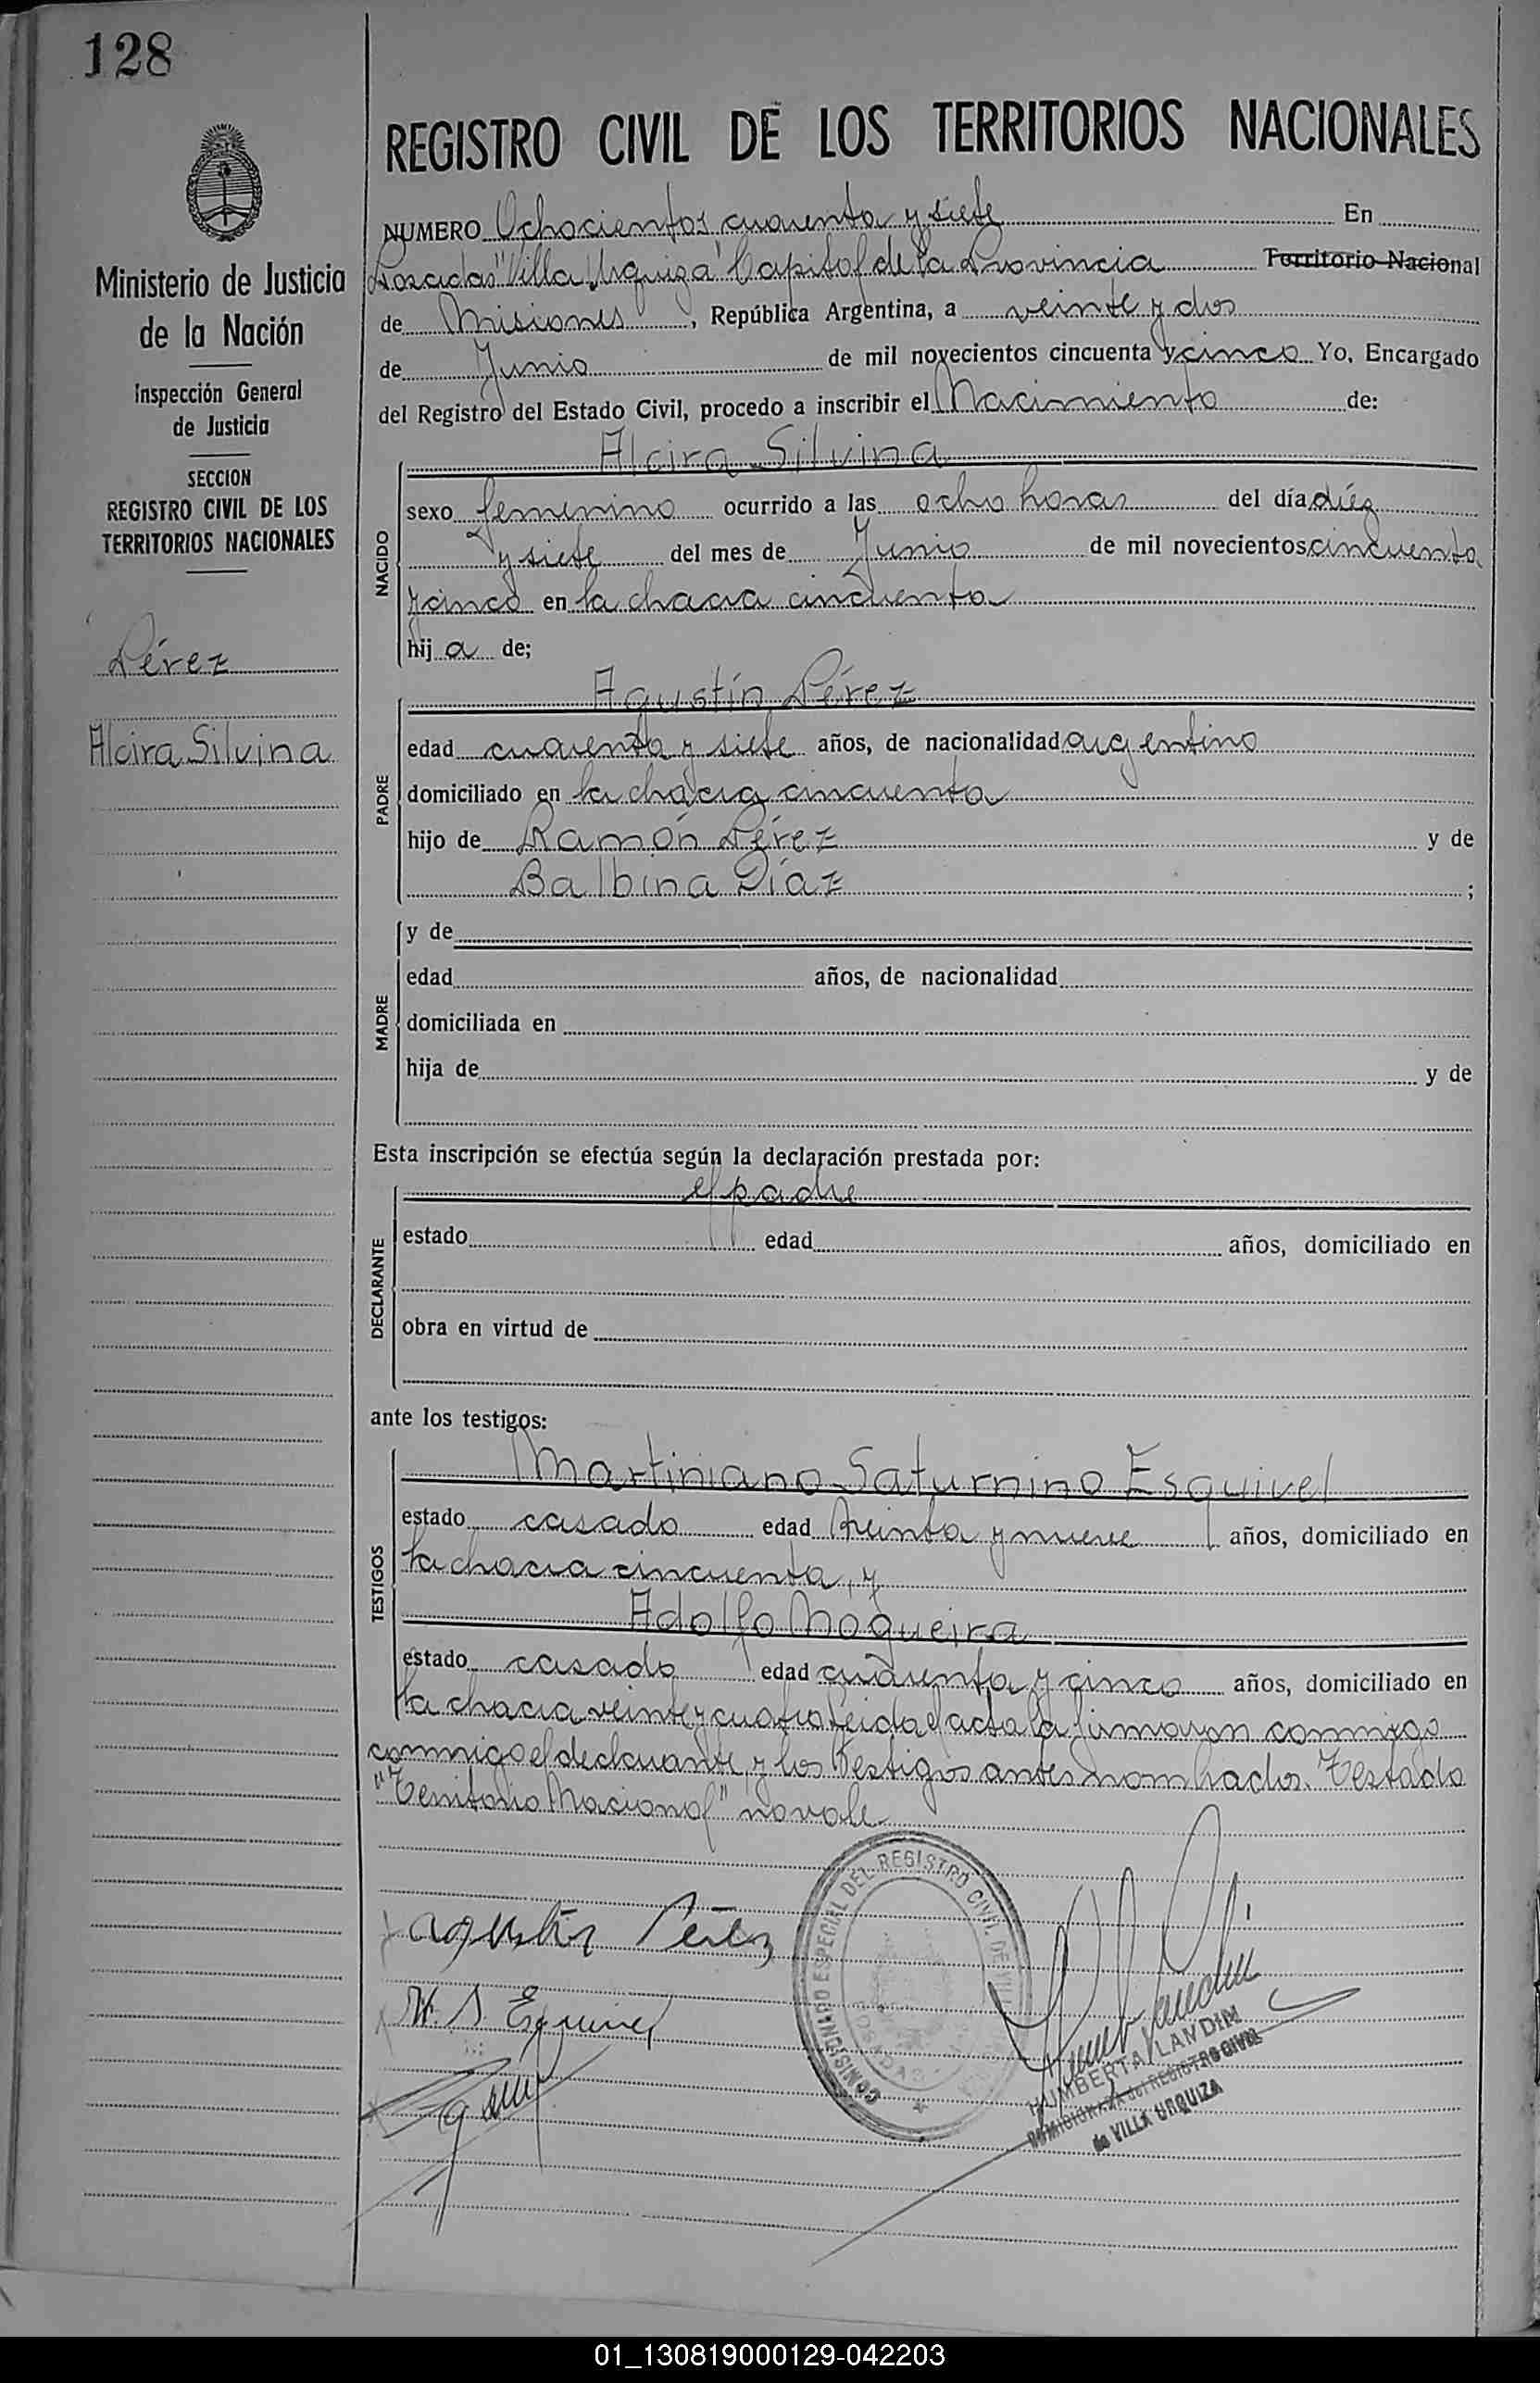 128
REGISTRO CIVIL DE LOS TERRITORIOS NACIONALES
Ministerio de Justicia
de la Nación
Inspección General
de Justicia
SECCION
REGISTRO CIVIL DE LOS
TERRITORIOS NACIONALES
Pérez
Alcira Silvina
NUMERO Ochocientos cuarenta y siete En
Posadas "Villa Urquiza" Capital de la Provincia Territorio Nacional
de Misiones, República Argentina, a veinte y dos
de Junio de mil novecientos cincuenta y cinco Yo, Encargado
del Registro del Estado Civil, procedo a inscribir el Nacimiento de:
NACIDO
Alcira Silvina
sexo femenino ocurrido a las ocho horas del día diéz
y siete del mes de Junio de mil novecientos cincuenta
y cinco en la chacra cincuenta
hij a de;
PADRE
Agustín Pérez
edad cuarenta y siete años, de nacionalidad argentino
domiciliado en la chacra cincuenta
hijo de Ramón Pérez y de
Balbina Díaz ;
MADRE
y de
edad años, de nacionalidad
domiciliada en
hija de y de
Esta inscripción se efectúa según la declaración prestada por:
DECLARANTE
el padre
estado edad años, domiciliado en
obra en virtud de
ante los testigos:
TESTIGOS
Martiniano Saturnino Esquivel
estado casado edad treinta y nueve años, domiciliado en
la chacra cincuenta, y
Adolfo Nogueira
estado casado edad cuarenta y cinco años, domiciliado en
la chacra veinte y cuatro leida el acta la firmaron conmigo
conmigo el declarante, y los testigos antes nombrados. Testado
"Territorio Nacional" no vale
COMISIONADO ESPECIAL DEL REGISTRO CIVIL DE
POSADAS
Agustín Pérez
M. S. Esquivel
HUMBERTA LANDIN
COMISIONADA del REGISTRO CIVIL
de VILLA URQUIZA
01_130819000129-042203